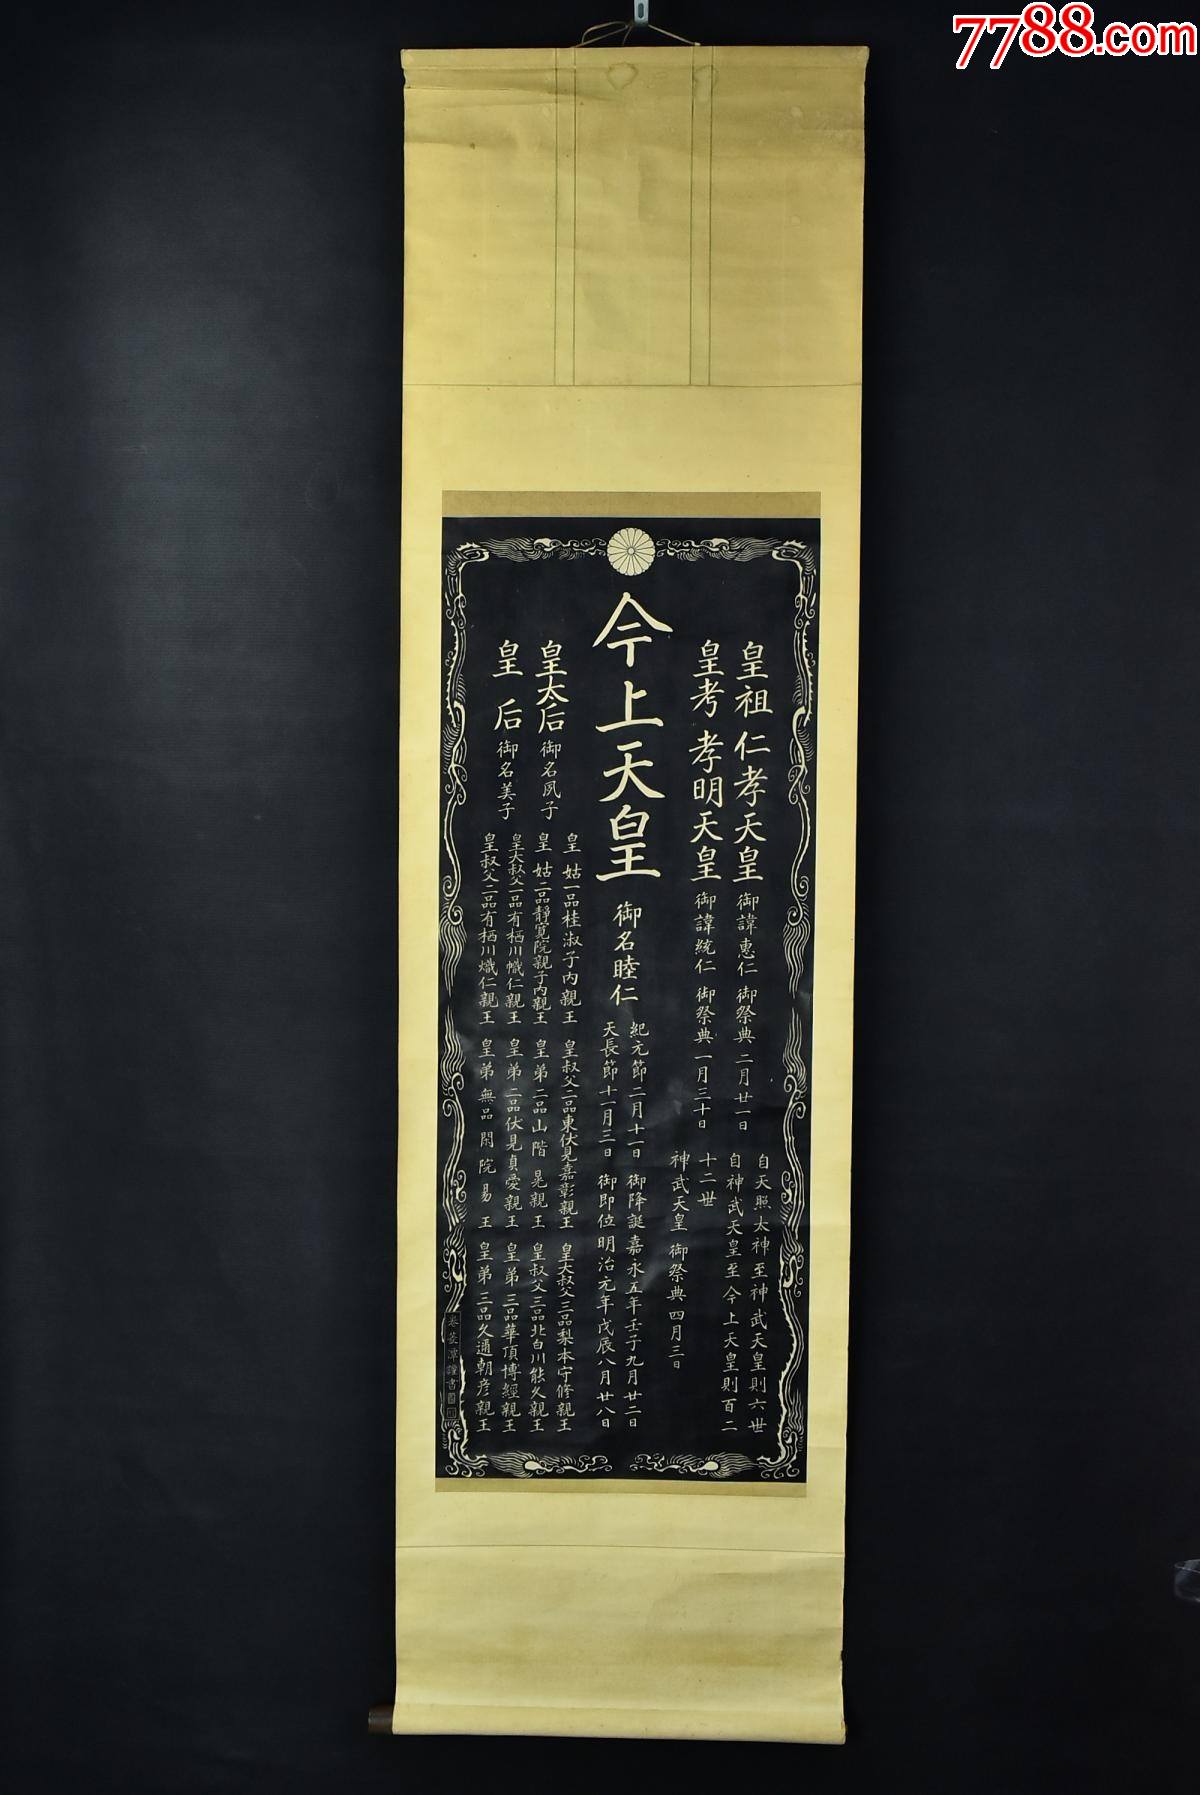 7788.com
皇祖仁孝天皇 御諱惠仁 御祭典 二月廿一日
皇考孝明天皇 御諱統仁 御祭典 一月三十日
自天照太神至神武天皇則六世
自神武天皇至今上天皇則百二
十二世
神武天皇 御祭典 四月三日
今上天皇 御名睦仁
紀元節二月十一日 御降誕嘉永五年壬子九月廿二日
天長節十一月三日 御即位明治元年戊辰八月廿八日
皇太后 御名夙子
皇后 御名美子
皇姑一品桂淑子内親王 皇叔父二品東伏見嘉彰親王 皇大叔父三品梨本守脩親王
皇姑二品靜寛院親子内親王 皇弟二品山階晃親王 皇叔父三品北白川能久親王
皇大叔父一品有栖川幟仁親王 皇弟二品伏見貞愛親王 皇弟三品華頂博經親王
皇叔父二品有栖川熾仁親王 皇弟無品閑院易王 皇弟三品久邇朝彦親王
卷菱潭謹書